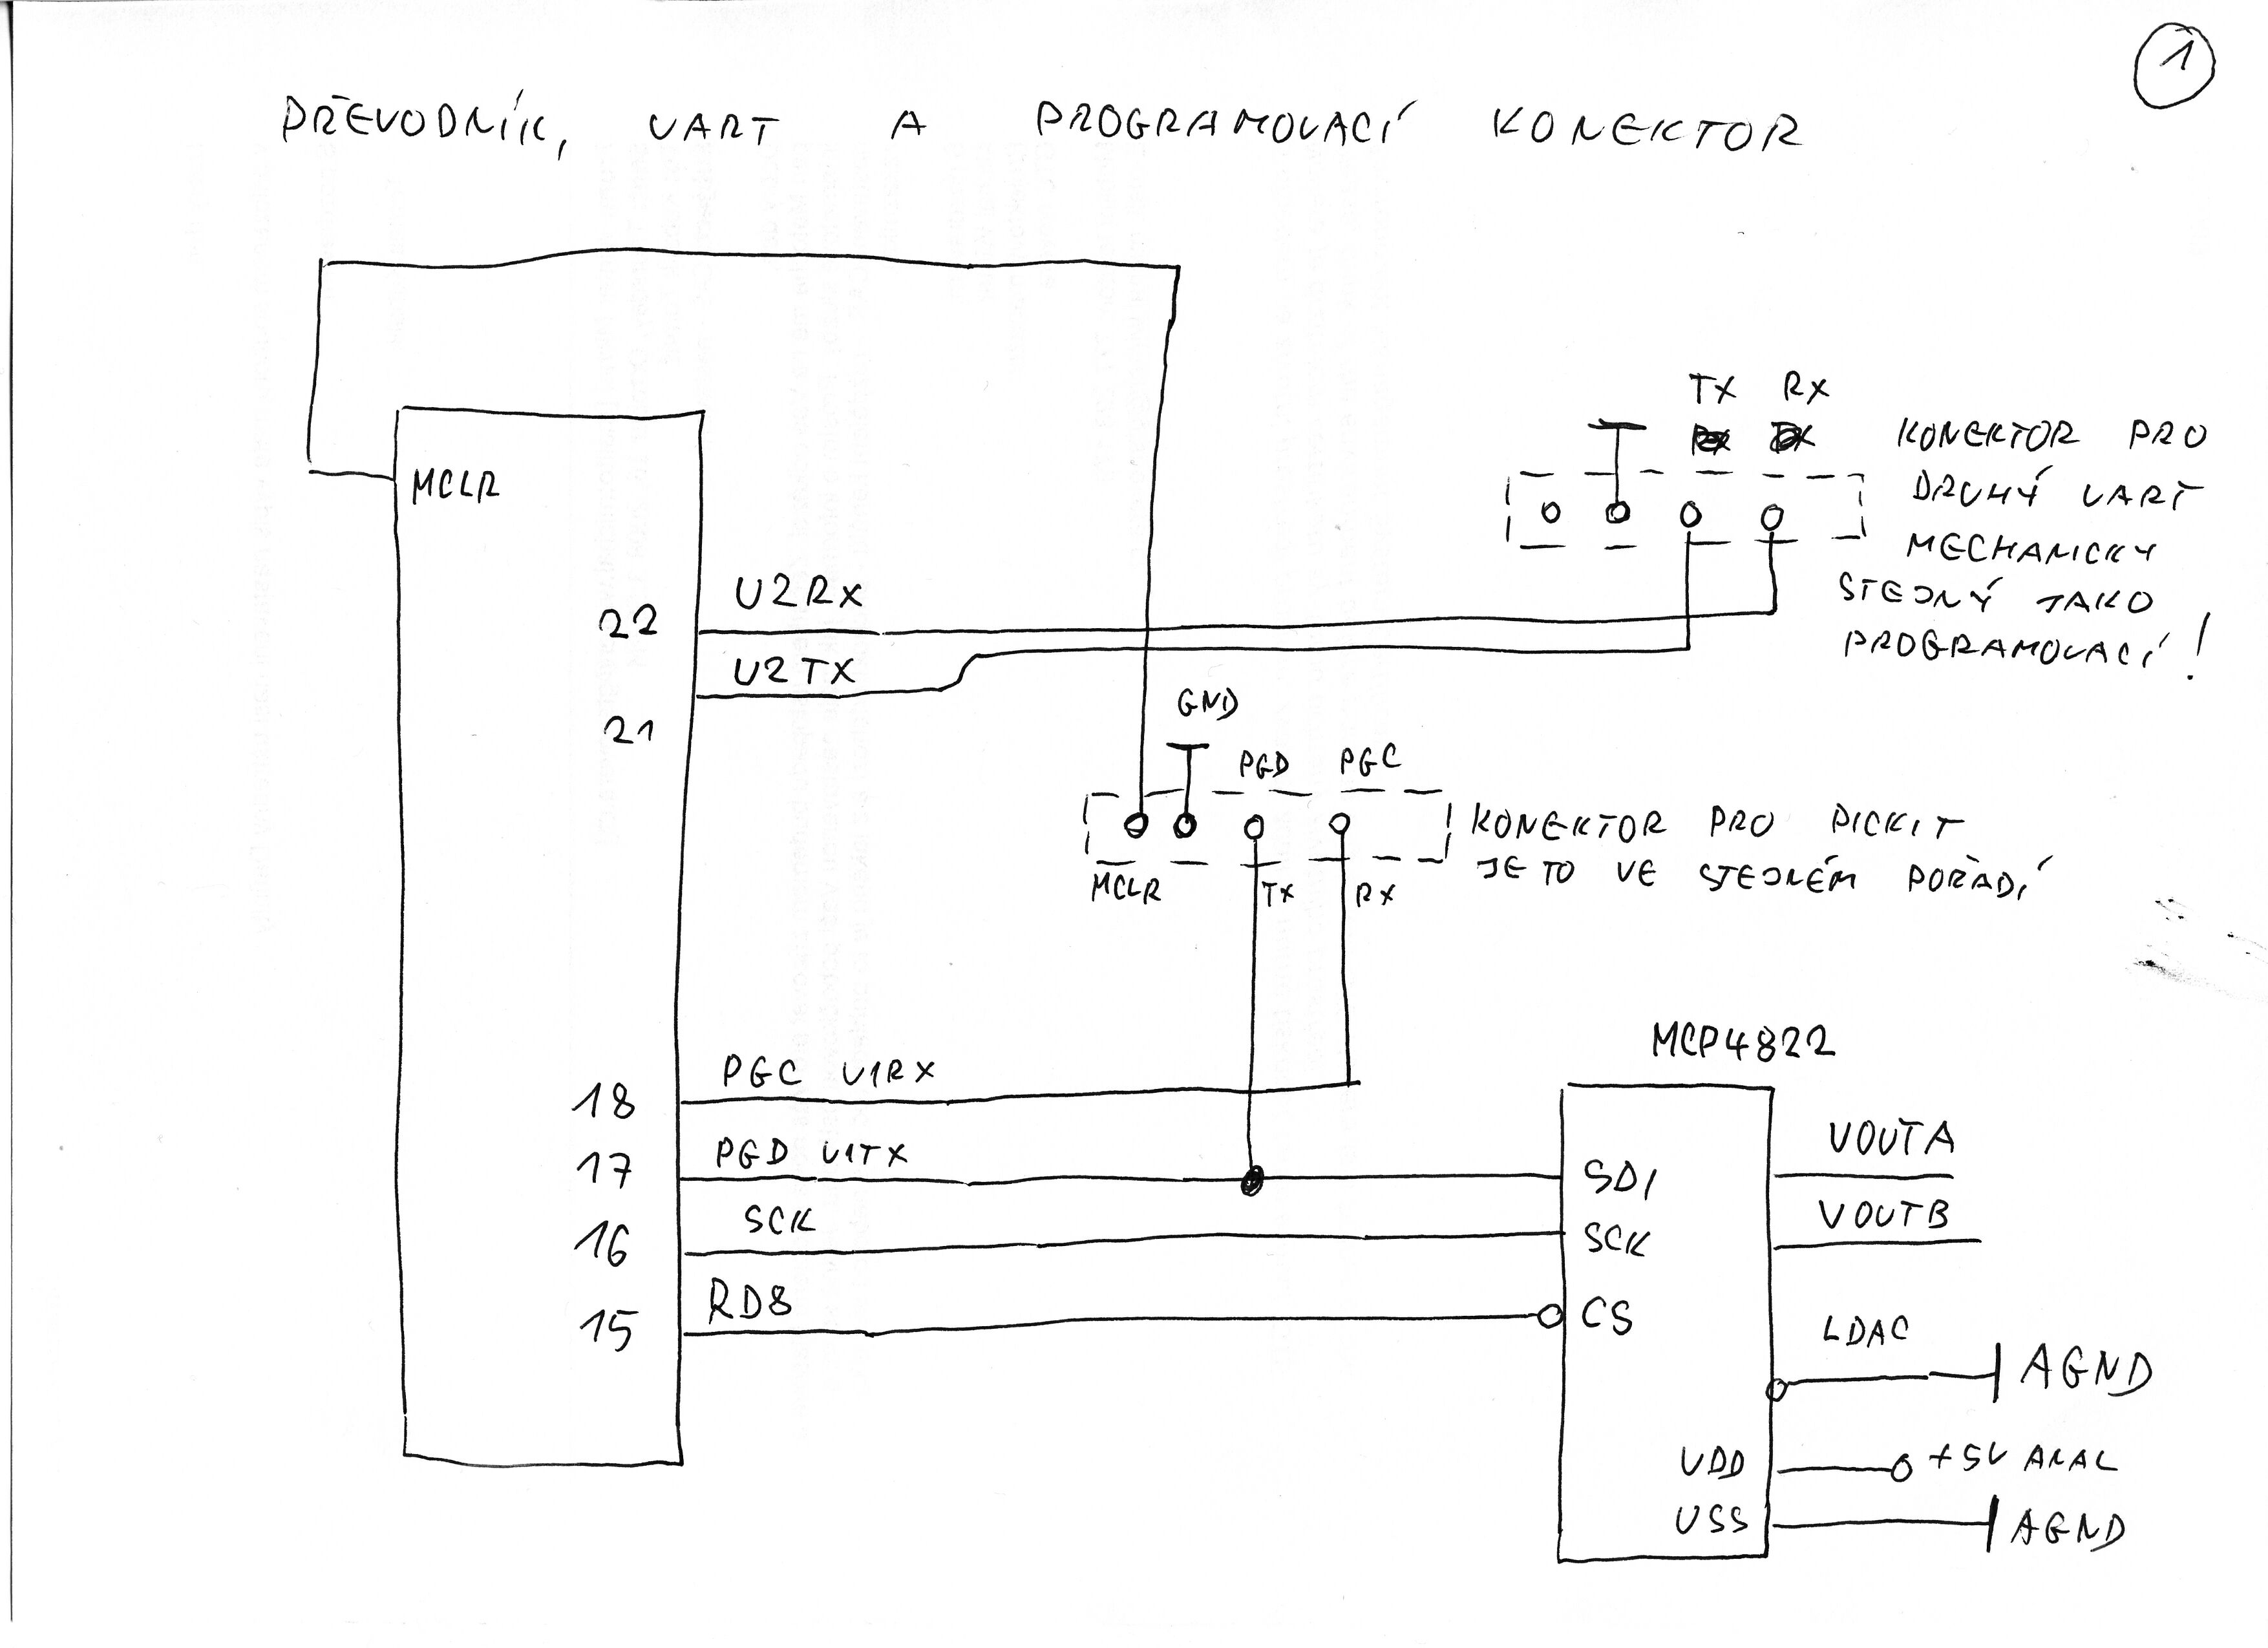 1
PŘEVODNÍK, UART A PROGRAMOVACÍ KONEKTOR
TX RX
KONEKTOR PRO
DRUHÝ UART
MECHANICKY
STEJNÝ JAKO
PROGRAMOVACÍ!
MCLR
22
U2RX
U2TX
21
GND
PGD PGC
KONEKTOR PRO PICKIT
JE TO VE STEJNÉM POŘADÍ
MCLR TX RX
MCP4822
18 PGC U1RX
17 PGD U1TX
16 SCK
15 RD8
SDI
SCK
CS
VOUTA
VOUTB
LDAC
AGND
VDD +5V ANAL
VSS AGND